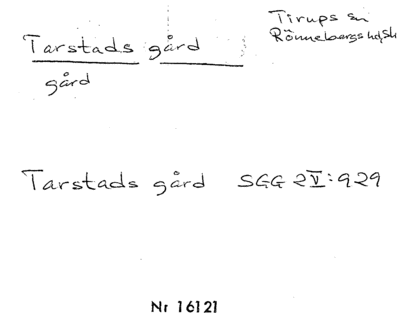 Tarstads gård
Tirups sn
Rönnebergs hd, Sk
gård
Tarstads gård SGG 2V:929
Nr 16121